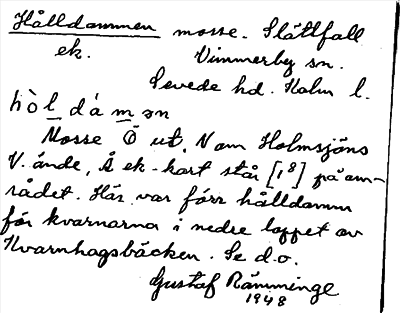 Hålldammen mosse. Slåttfall
ek. Vimmerby sn.
Sevede hd. Kalm l.
hòl dá m ən
Mosse Ö ut, N om Holmsjöns
V. ände, Å ek-kart står [18] på om-
rådet. Här var förr hålldamm
för kvarnarna i nedre loppet av
Kvarnhagsbäcken. Se d.o.
Gustaf Rämminge
1948